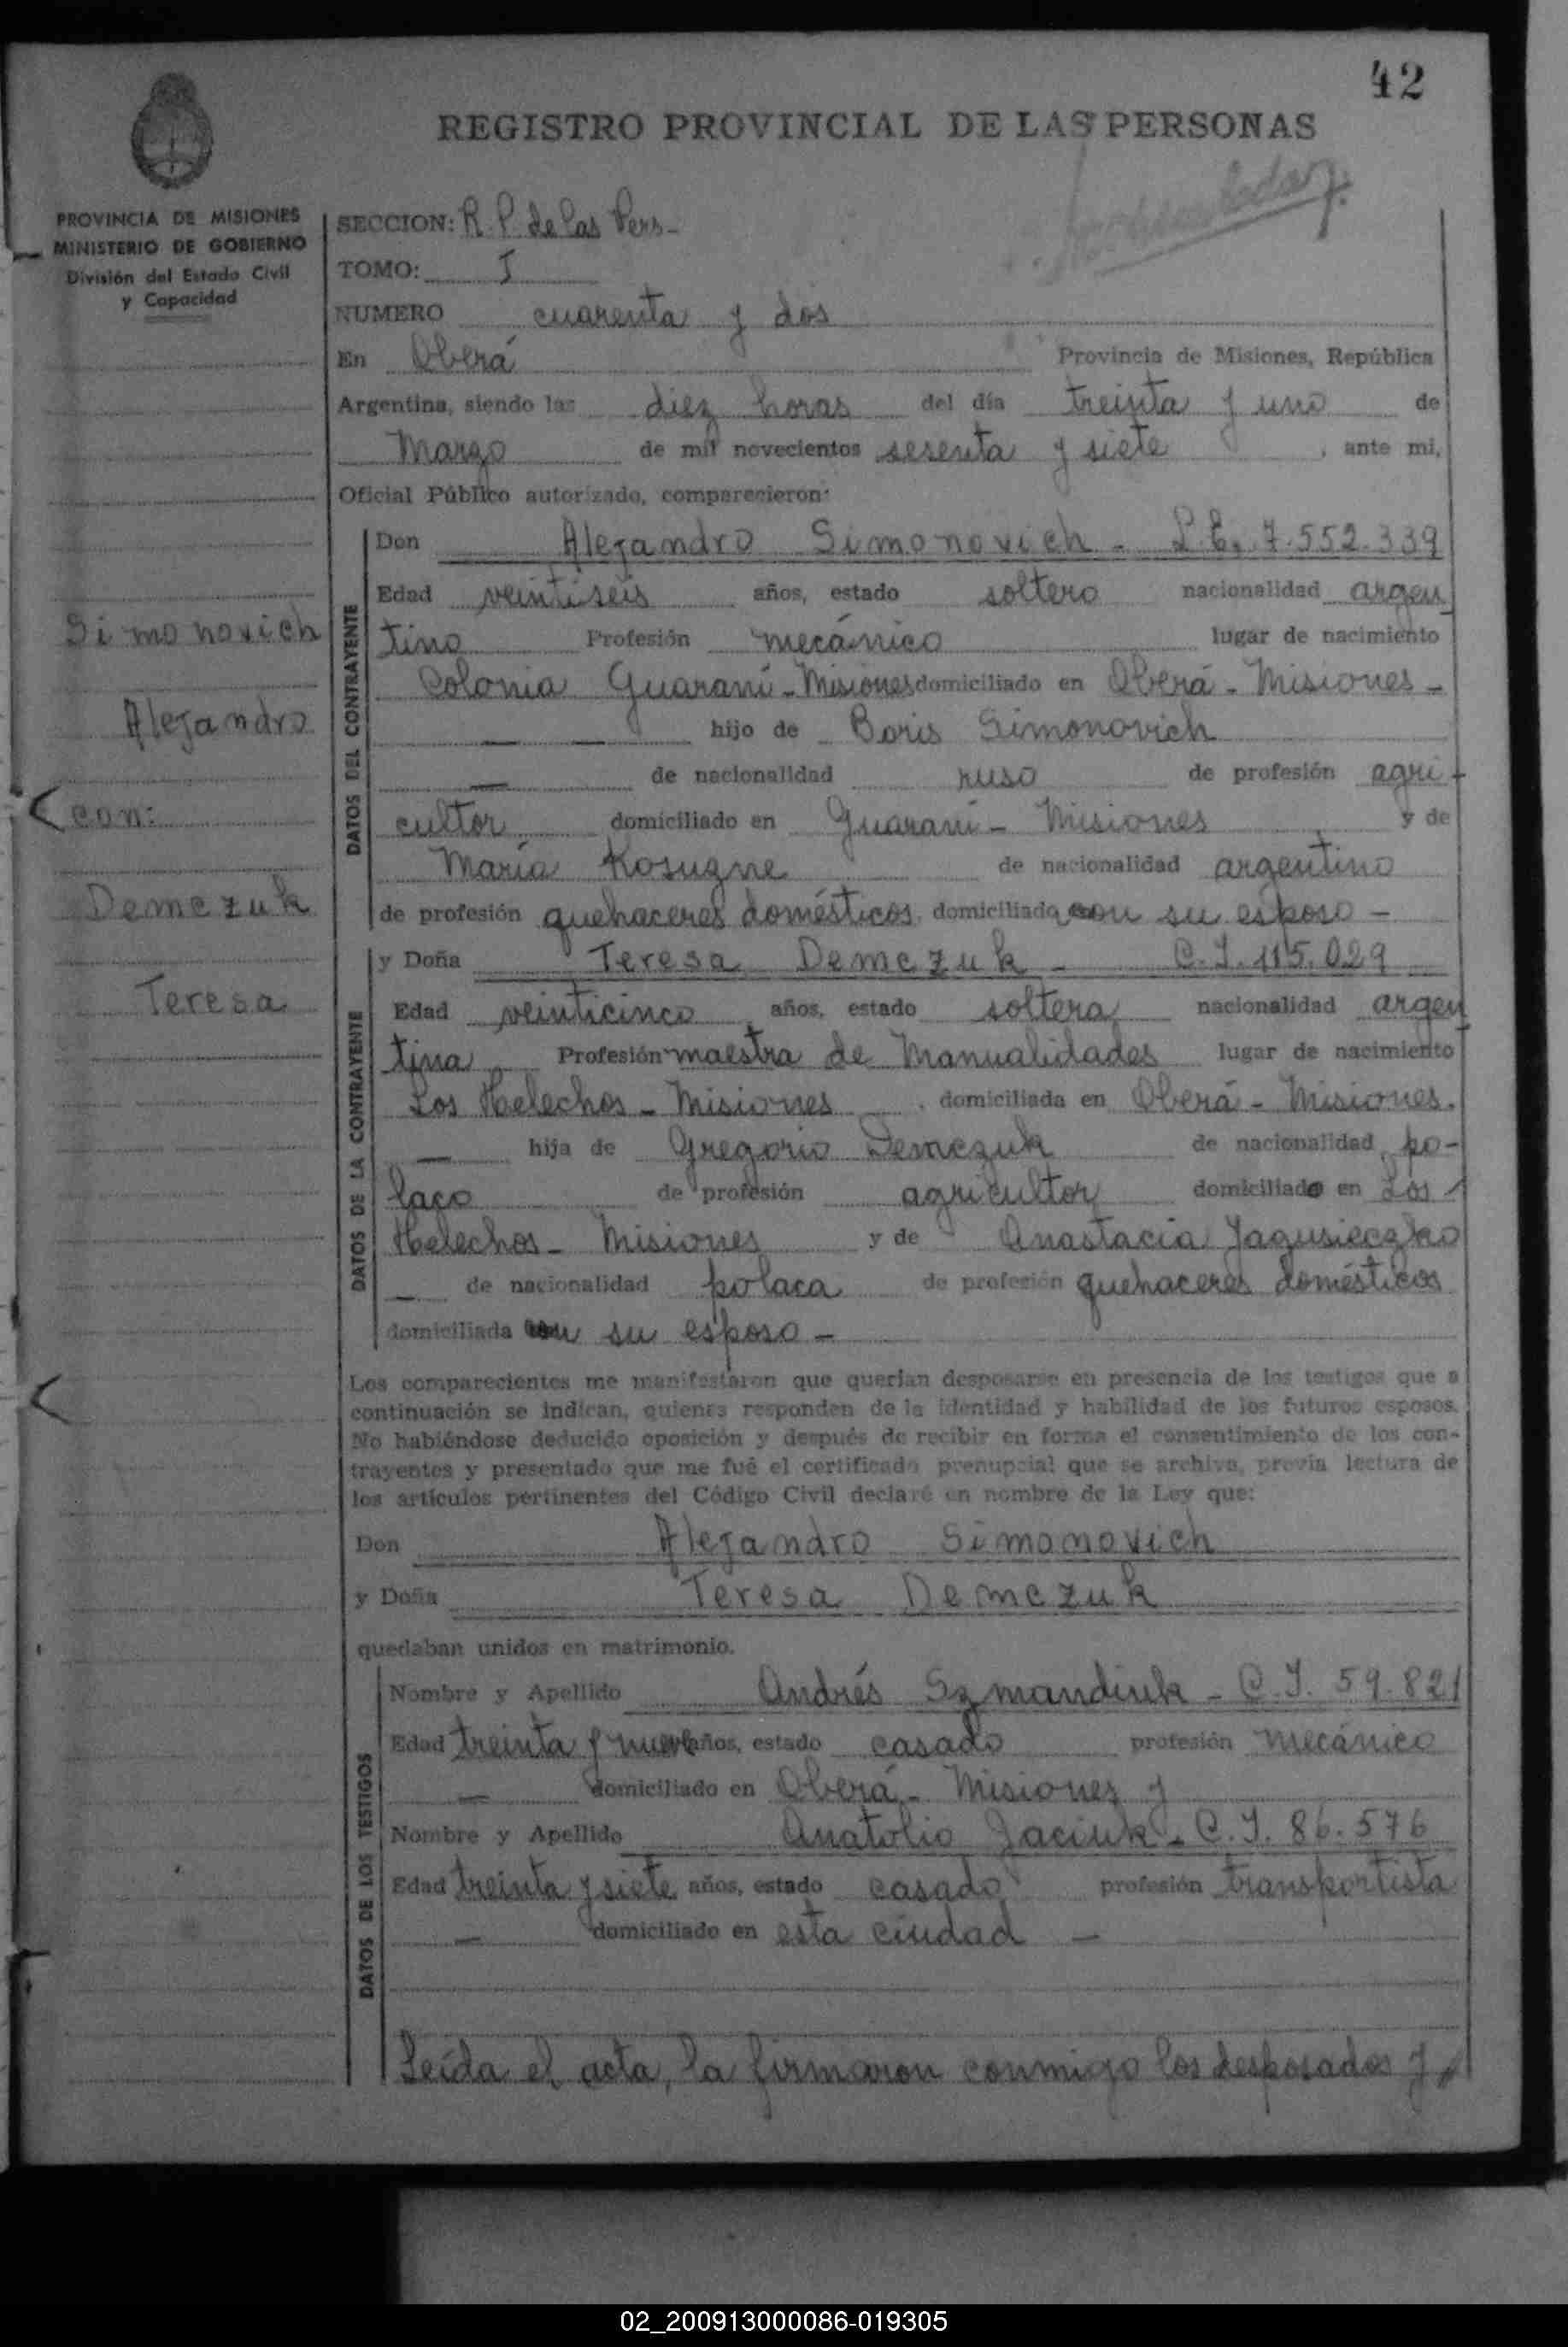 42
REGISTRO PROVINCIAL DE LAS PERSONAS
PROVINCIA DE MISIONES
MINISTERIO DE GOBIERNO
División del Estado Civil
y Capacidad
SECCION: R. P. de las Pers-
TOMO: I
NUMERO cuarenta y dos
En Oberá Provincia de Misiones, República
Argentina, siendo las diez horas del día treinta y uno de
Marzo de mil novecientos sesenta y siete, ante mi,
Oficial Público autorizado, comparecieron:
Simonovich
Alejandro
con:
Demczuk
Teresa
DATOS DEL CONTRAYENTE
Don Alejandro Simonovich - L.E. 7.552.339
Edad veintiseis años, estado soltero nacionalidad argen
tino Profesión mecánico lugar de nacimiento
Colonia Guaraní - Misiones domiciliado en Oberá - Misiones -
— — hijo de Boris Simonovich
— de nacionalidad ruso de profesión agri-
cultor domiciliado en Guaraní - Misiones y de
María Kosugne de nacionalidad argentino
de profesión quehaceres domésticos, domiciliada con su esposo -
DATOS DE LA CONTRAYENTE
y Doña Teresa Demczuk - C.I. 115.029
Edad veinticinco años, estado soltera nacionalidad argen
tina Profesión maestra de Manualidades lugar de nacimiento
Los Helechos - Misiones, domiciliada en Oberá - Misiones.
— hija de Gregorio Demczuk de nacionalidad po-
laco de profesión agricultor domiciliado en Los
Helechos - Misiones y de Anastacia Jagusieczko
— de nacionalidad polaca de profesión quehaceres domésticos
domiciliada con su esposo -
Los comparecientes me manifestaron que querían desposarse en presencia de los testigos que a
continuación se indican, quienes responden de la identidad y habilidad de los futuros esposos.
No habiéndose deducido oposición y después de recibir en forma el consentimiento de los con-
trayentes y presentado que me fué el certificado prenupcial que se archiva, previa lectura de
los artículos pertinentes del Código Civil declaré en nombre de la Ley que:
Don Alejandro Simonovich
y Doña Teresa Demczuk
quedaban unidos en matrimonio.
DATOS DE LOS TESTIGOS
Nombre y Apellido Andrés Szmandiuk - C.I. 59.821
Edad treinta y nueve años, estado casado profesión mecánico
— domiciliado en Oberá - Misiones y
Nombre y Apellido Anatolio Jaciuk - C.I. 86.576
Edad treinta y siete años, estado casado profesión transportista
— domiciliado en esta ciudad —
Leída el acta, la firmaron conmigo los desposados y
02_200913000086-019305